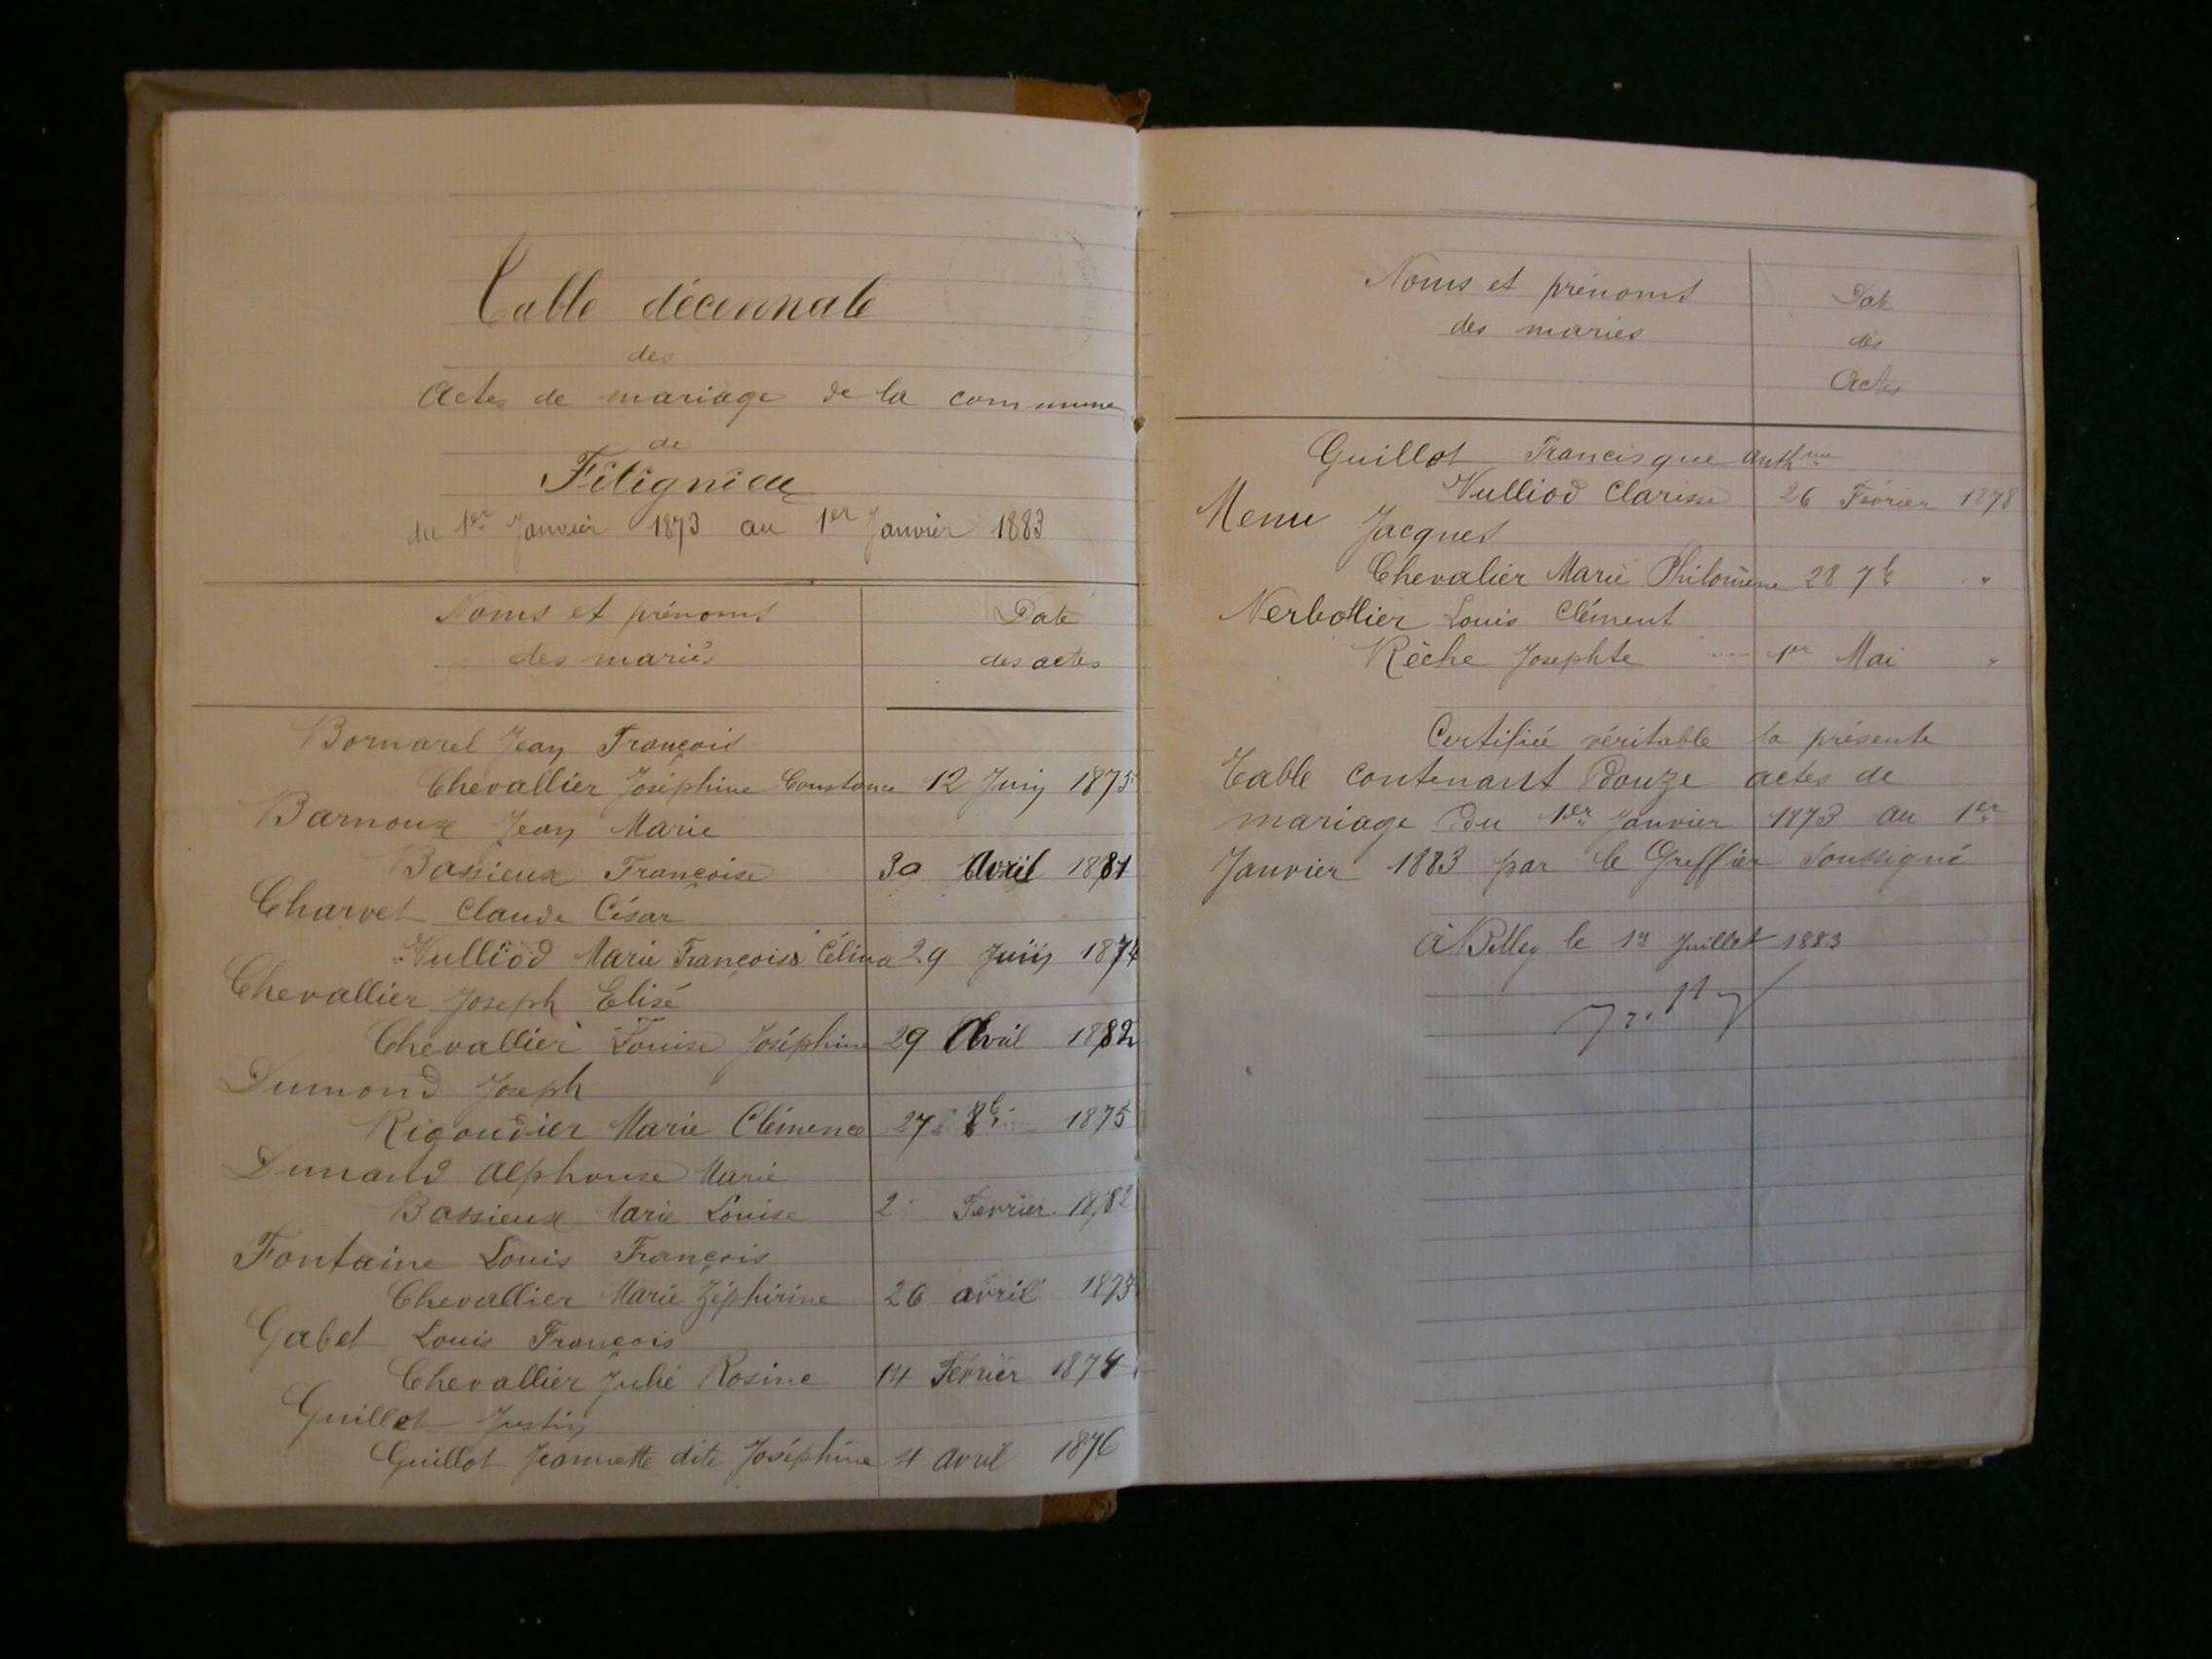 Table décennale
des
Actes de mariage de la commune
de
Fitignieu
du 1er Janvier 1873 au 1er Janvier 1883
Noms et prénoms
des mariés
Date
des actes
Bornarel Jean François
Chevallier Joséphine Constance 12 Juin 1875
Barnoux Jean Marie
Bassieux Françoise 30 Avril 1881
Charvet Claude César
Vulliod Marie François Célina 29 Juin 1874
Chevallier Joseph Elisé
Chevallier Louise Joséphine 29 Avril 1882
Dumond Joseph
Rigoudier Marie Clémence 27 8b 1875
Dunand Alphonse Marie
Bassieux Marie Louise 2 Février 1882
Fontaine Louis François
Chevallier Marie Zéphirine 26 avril 1873
Gabet Louis François
Chevallier Julie Rosine 14 Février 1874
Guillot Justin
Guillot Jeannette dite Joséphine 4 Avril 1876
Noms et prénoms
des mariés
Date
des
Actes
Guillot Francisque Anthme
Vulliod Clarisse 26 Février 1878
Menu Jacques
Chevalier Marie Philomène 28 7b "
Nerbollier Louis Clément
Rêche Josephte 1er Mai "
Certifiée véritable la présente
Table contenant douze actes de
mariage du 1er Janvier 1873 au 1er
Janvier 1883 par le Greffier soussigné
à Belley le 12 Juillet 1883